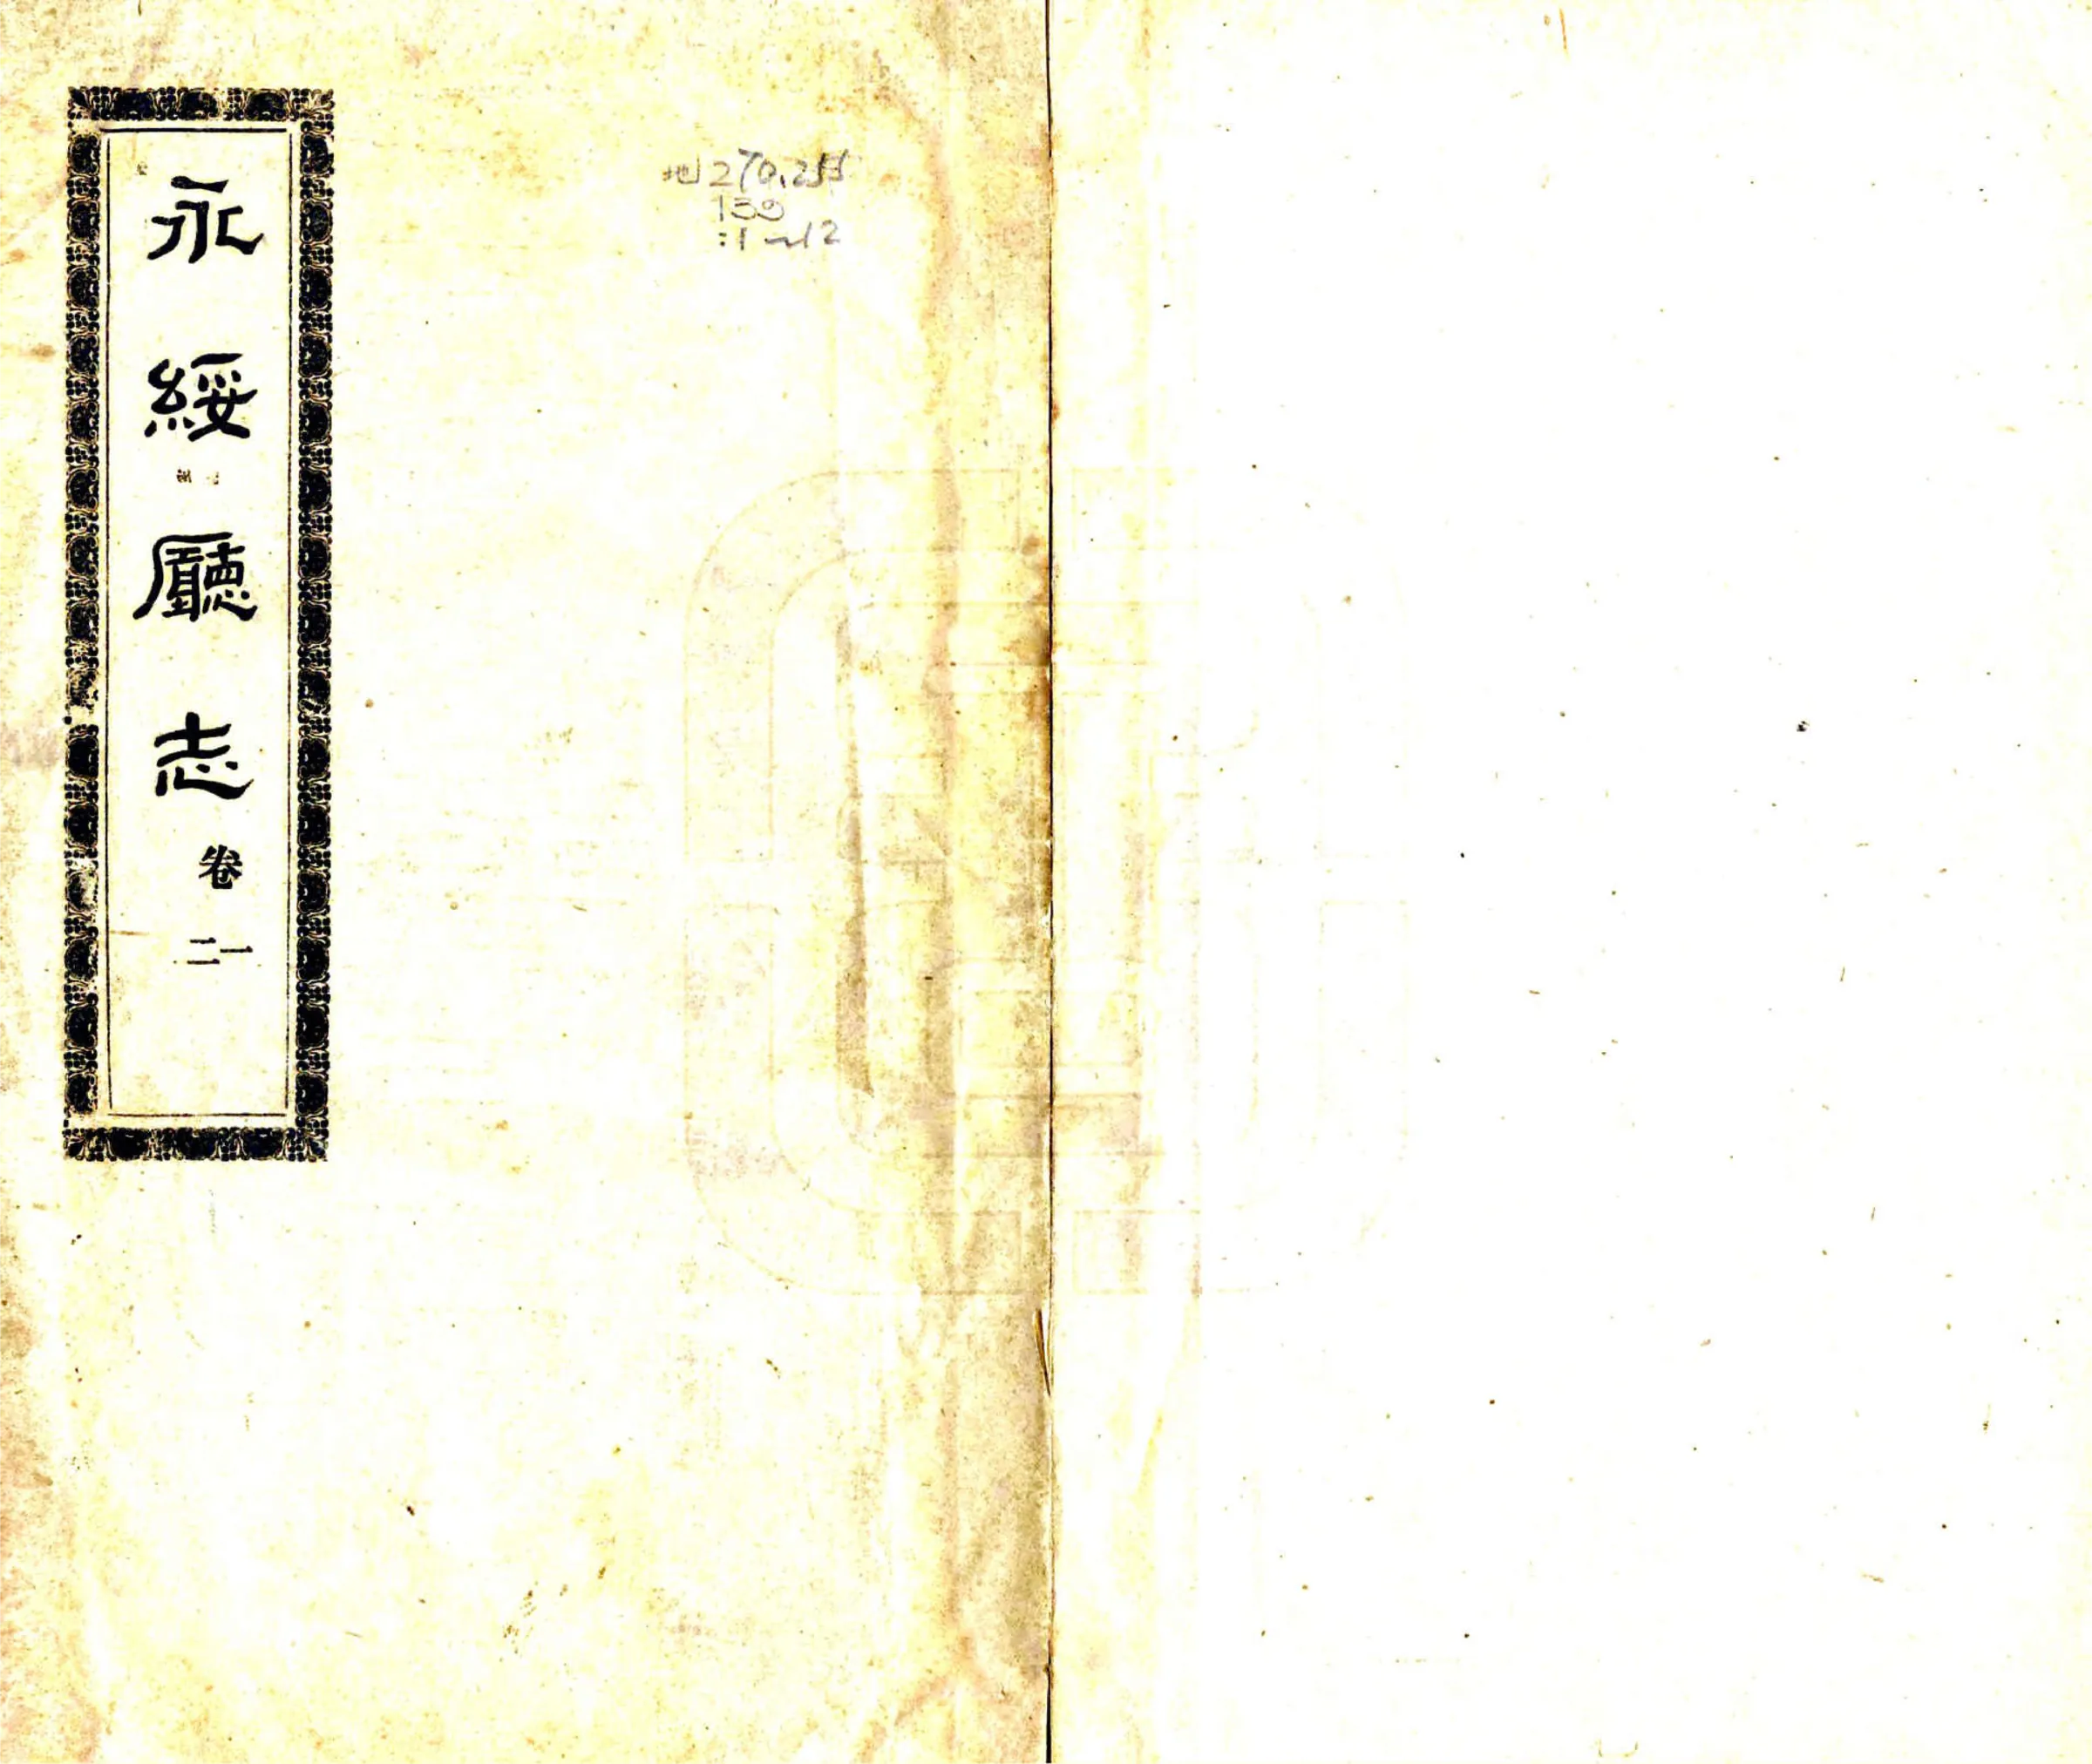 永綏廳志 卷一二
地270.255
159
:1~12